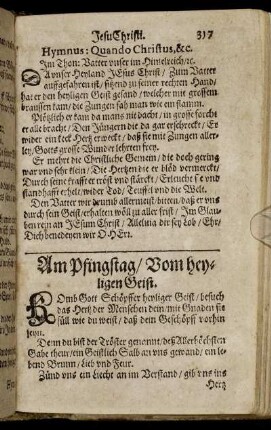 Jesu Christi. 317
Hymnus: Quando Christus, &c.
Im Thon: Vatter vnser im Himelreich/ꝛc.
DA vnser Heyland JEsus Christ / Zum Vatter
auffgefahren ist/ sitzend zu seiner rechten Hand/
hat er den heyligen Geist gesand/ welcher mit grossem
braussen kam/ die Zungen sah man wie ein flamm.
Plötzlich er kam da mans nicht dacht/ in grosse forcht
er alle bracht / Den Jüngern die da gar erschreckt/ Er
wider ein keck Hertz erweckt/ daß sie mit Zungen aller-
ley/ Gotts grosse Wunder lehrten frey.
Er mehrt die Christliche Gemein/ die doch gering
war vnd sehr klein / Die Hertzen die er blöd vermerckt/
Durch seine krafft er tröst vnd stärckt/ Erleucht sie vnd
standhafft erhelt/ wider Tod/ Teuffel vnd die Welt.
Den Vatter wir drumb allermeist bitten/ daß er vns
durch sein Geist/ erhalten wöll zu aller frist / Im Glau-
ben rein an JEsum Christ / Alleluia dir sey Lob / Ehr/
Dich benedeyen wir O HErr.
Am Pfingstag/ Vom hey-
ligen Geist.
KOmb Gott Schöpffer heyliger Geist/ besuch
das Hertz der Menschen dein/ mit Gnaden sie
füll wie du weist/ daß dein Geschöpff vorhin
seyn.
Denn du bist der Tröster genannt/ deß Allerhöchsten
Gabe thewr/ ein Geistlich Salb an vns gewand/ ein le-
bend Brunn/ Lieb vnd Fewr.
Zünd vns ein Liecht an im Verstand / gib vns ins
Hertz